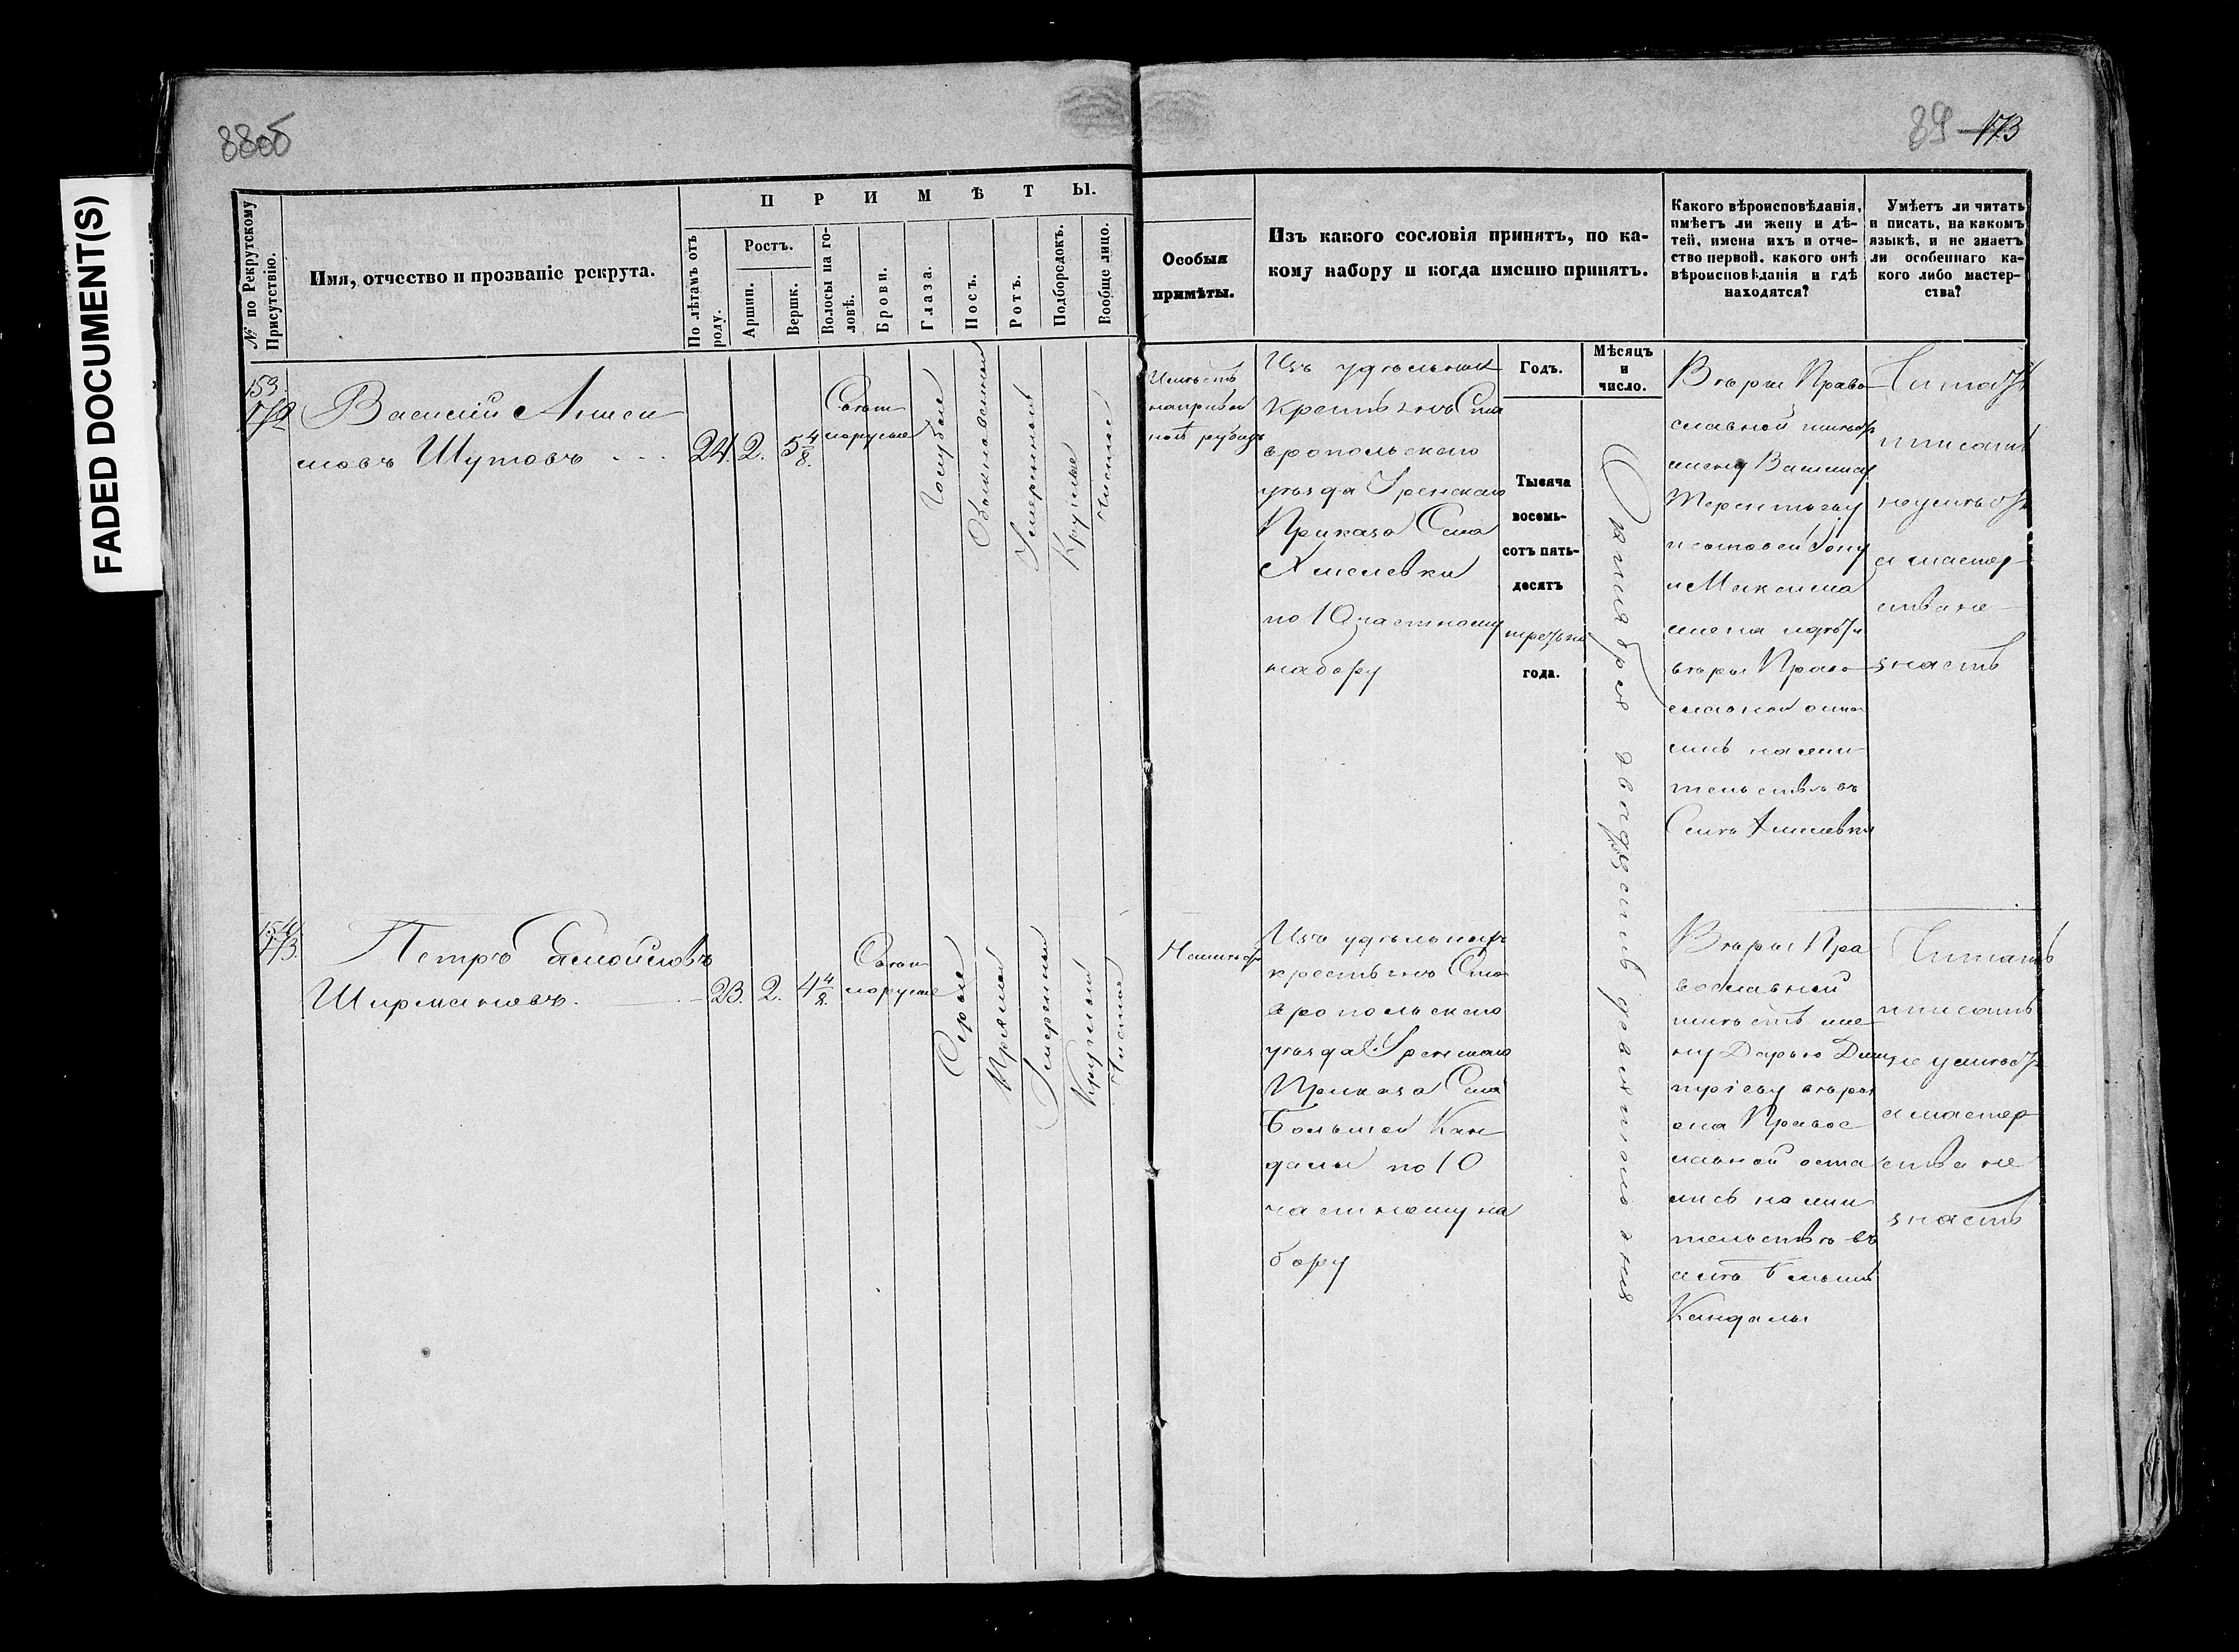 FADED DOCUMENT(S)
88об
89 173
№ по Рекрутскому Присутствію.
Имя, отчество и прозваніе рекрута.
ПРИМѢТЫ.
По лѣтамъ отъ роду.
Ростъ.
Аршин.
Вершк.
Волосы на головѣ.
Брови.
Глаза.
Носъ.
Ротъ.
Подбородокъ.
Вообще лицо.
Особыя
примѣты.
Изъ какого сословія принятъ, по ка-
кому набору и когда именно принятъ.
Какого вѣроисповѣданія,
имѣетъ ли жену и дѣ-
тей, имена ихъ и отче-
ство первой, какого онѣ
вѣроисповѣданія и гдѣ
находятся?
Умѣетъ ли читать
и писать, на какомъ
языкѣ, и не знаетъ
ли особеннаго ка-
кого либо мастер-
ства?
153.
Василий Аниси
мовъ Шутовъ
24. 2. 5 4/8.
Свѣт
лорусые
Голубые
Обыкновенный
Умеренный
Круглый
Чистое
Имѣетъ
на правой
Изъ удѣльныхъ
крестьянъ Ста
вропольскаго
уѣзда
Приказа Села
Хмелевки
по 10 частному
набору
Годъ.
Тысяча
восемь-
сотъ пять-
десятъ
третьяго
года.
Мѣсяцъ
и
число.
Октября двадцать девятого дня
Вѣры Право
славной имѣетъ
жену Василису
Терентьеву
и сыновей
и Максима
жена и дѣти
вѣры Право
славной оста
лись на жи
тельствѣ въ
Селѣ Хмелевки
Читать
писать
не умѣетъ
а мастер
ства не
знаетъ
154.
Петръ Самойловъ
Ширмановъ.
23. 2. 4 4/8.
Свѣт
лорусые
Серые
Прямой
Умеренный
Круглый
Чистое
Не имѣетъ
Изъ удѣльныхъ
крестьянъ Ста
вропольскаго
уѣзда
Приказа Села
Большой Кан
далы по 10
частному на
бору
Вѣры Пра
вославной
имѣетъ же
ну Дарью Дми
тріеву вѣры
она Правос
лавной оста
лись на жи
тельствѣ въ
селѣ Большой
Кандалы
Читать
писать
не умѣетъ
а мастер
ства не
знаетъ